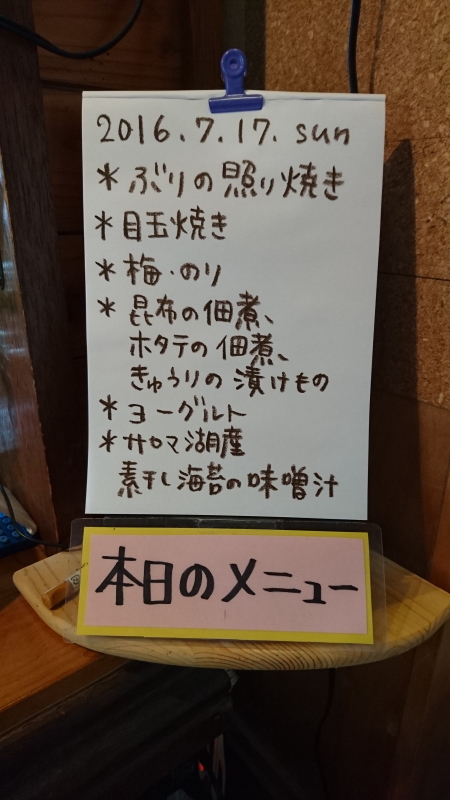 2016.7.17. sun
*ぶりの照り焼き
*目玉焼き
*梅・のり
*昆布の佃煮、
ホタテの佃煮、
きゅうりの漬けもの
*ヨーグルト
*サロマ湖産
素干し海苔の味噌汁
本日のメニュー